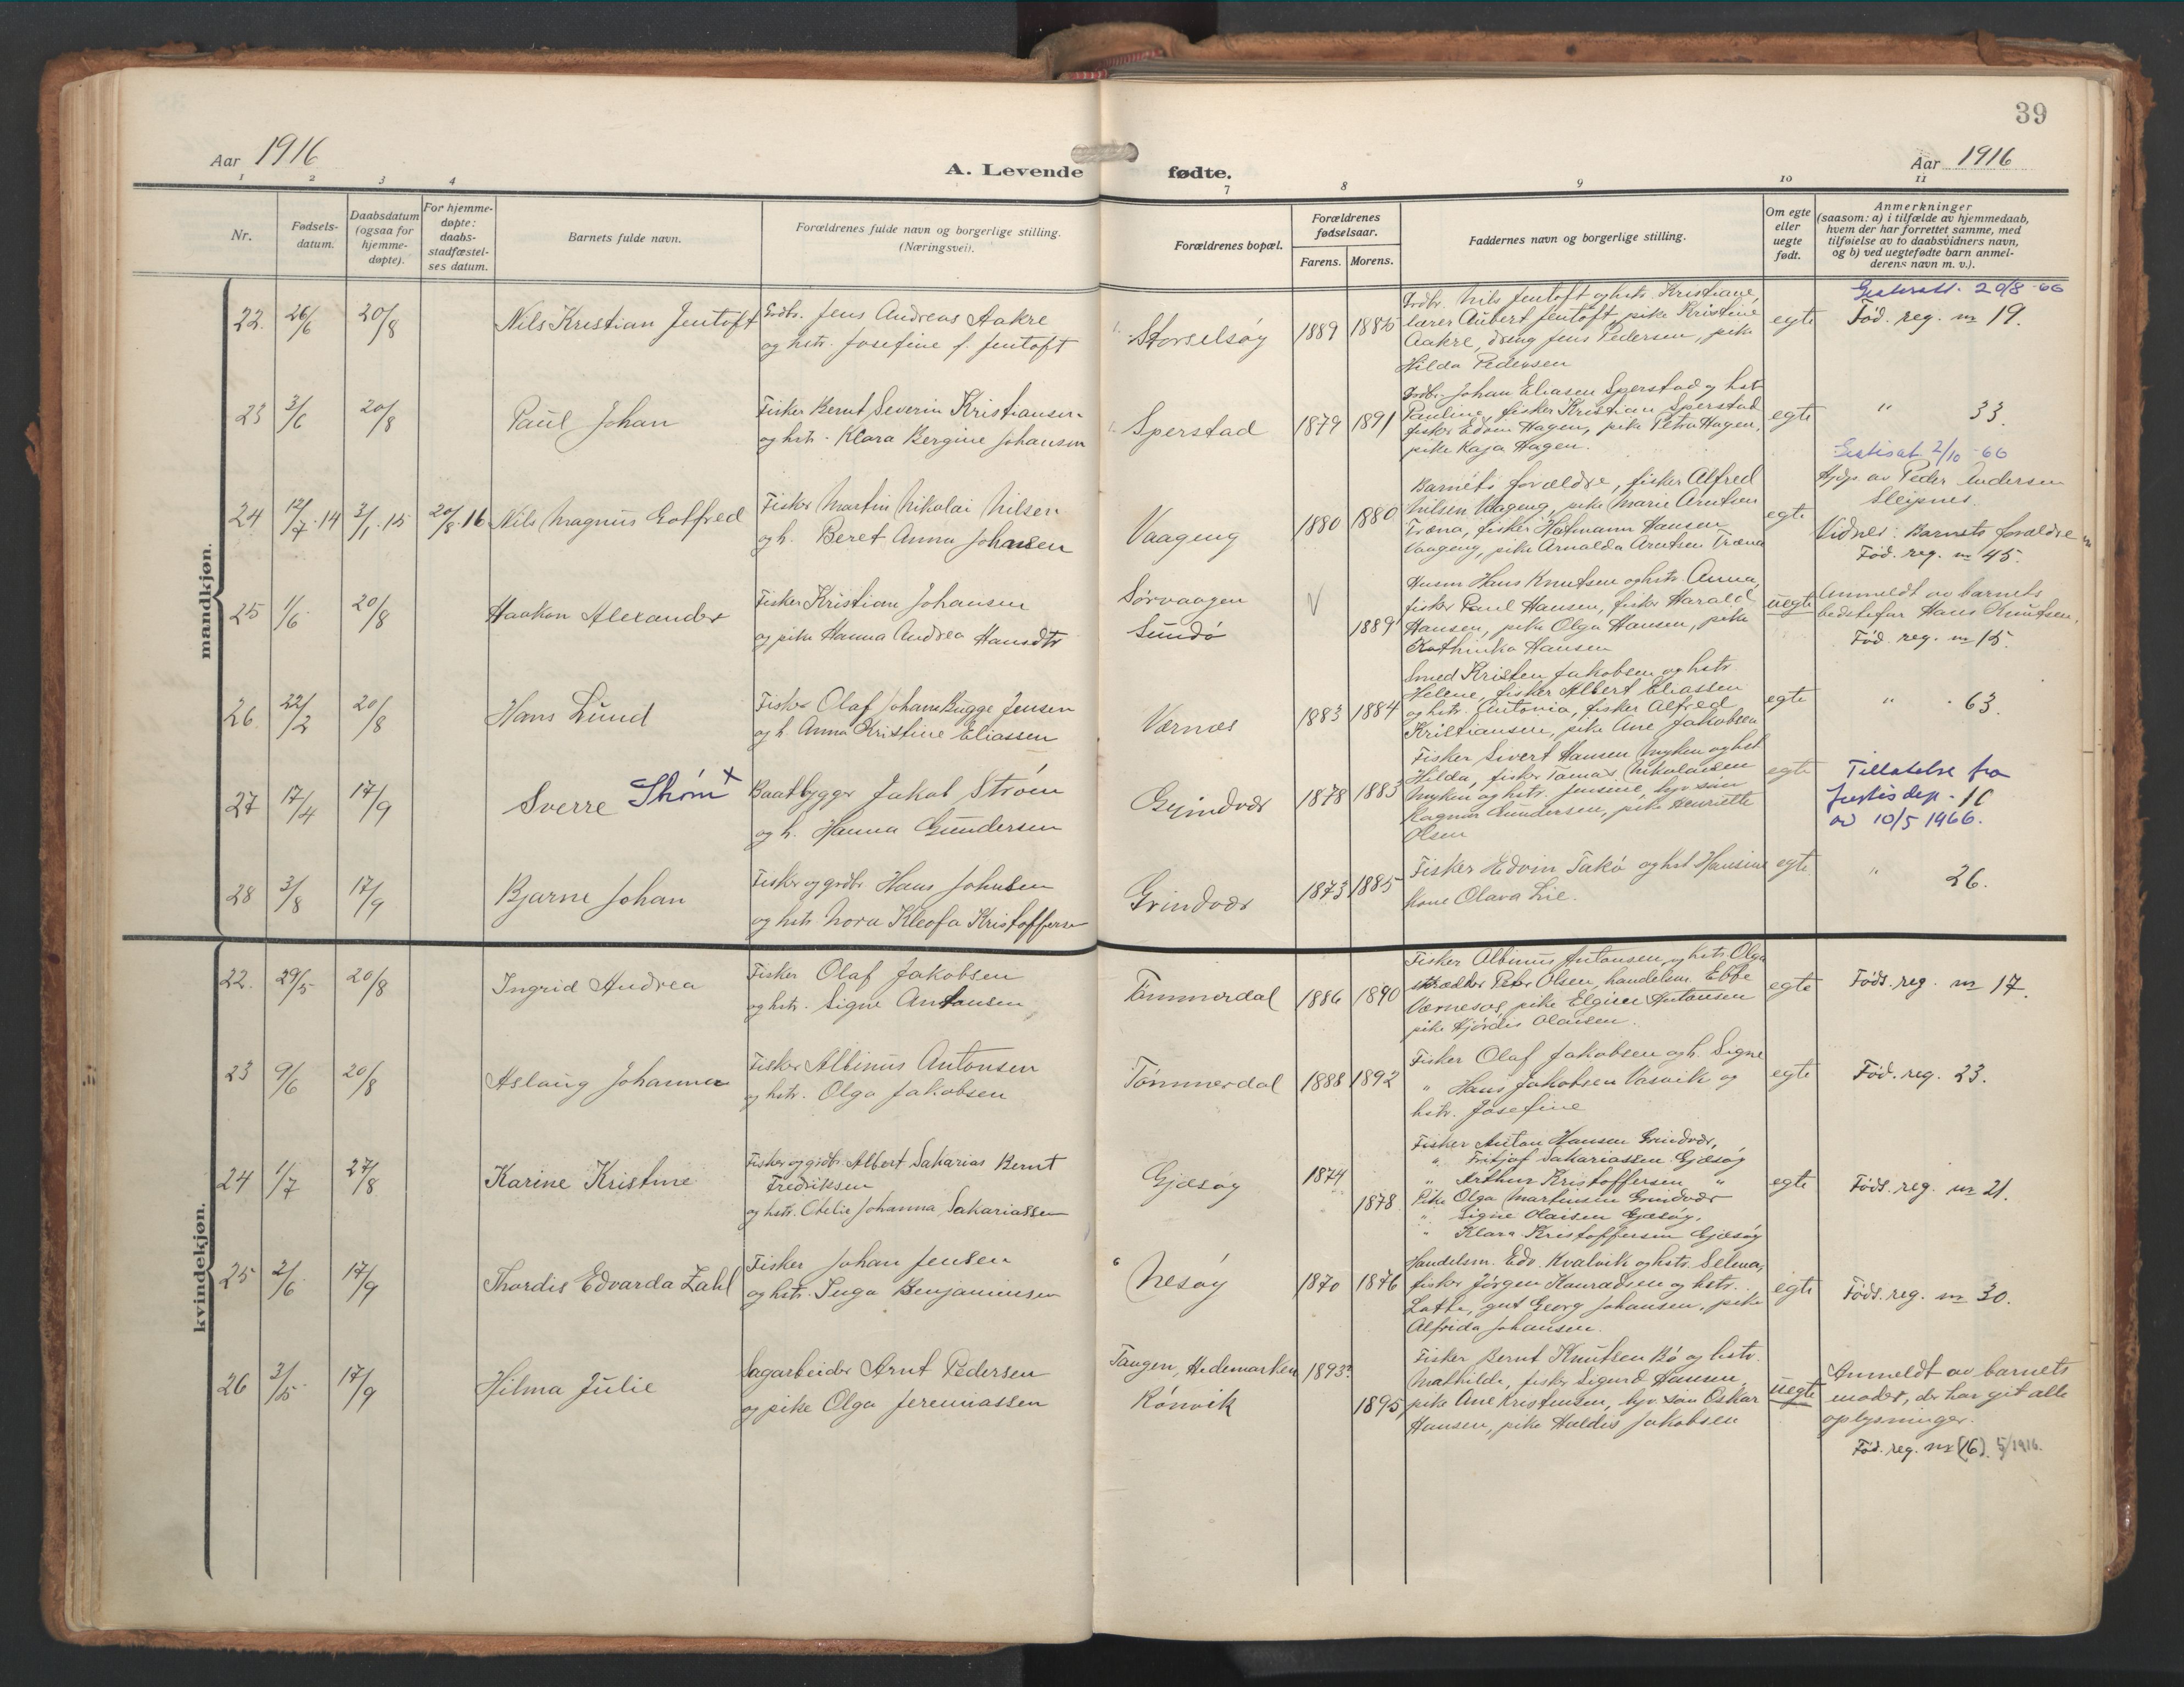 39
Aar 1916
A. Levende fødte.
Aar 1916
1 2 3 4 7 8 9 10 11
Nr.
Fødsels-
datum.
Daabsdatum
(ogsaa for
hjemme-
døpte).
For hjemme-
døpte:
daabs-
stadfæstel-
ses datum.
Barnets fulde navn.
Forældrenes fulde navn og borgerlige stilling.
(Næringsvei).
Forældrenes bopæl.
Forældrenes
fødselsaar.
Farens. Morens.
Faddernes navn og borgerlige stilling.
Om egte
eller
uegte
født.
Anmerkninger
(saasom: a) i tilfælde av hjemmedaab,
hvem der har forrettet samme, med
tilføielse av to daabsvidners navn,
og b) ved uegtefødte barn anmel-
derens navn m. v.).
mandkjøn.
22. 26/6 20/8 Nils Kristian Jentoft
Grdbr. Jens Andreas Aakre
og hstr. Josefine f. Jentoft
Storselsøy 1889 1885
Grdbr. Nils Jentoft og hstr. Kristiane,
lærer Aubert Jentoft, pike Kristine
Aakre, dreng Jens Pedersen, pike
Hilda Pedersen
egte
20/8-66
Fød. reg. nr 19.
23 3/6 20/8 Paul Johan
Fisker Bernt Severin Kristiansen
og hstr. Klara Bergine Johansen
Sperstad 1879 1891
Grdbr. Johan Eliasen Sperstad og hst
Pauline, fisker Kristian Sperstad
fisker Edvin Hagen, pike Petra Hagen,
pike Kaja Hagen.
egte
" 33.
24 12/7.14 3/1.15 20/8.16 Nils Magnus Gotfred
Fisker Martin Nikolai Nilsen
og h. Beret Anna Johansen
Vaageng 1880 1880
Barnets forældre, fisker Alfred
Nilsen Vaageng, pike Marie Arntsen
Træna, fisker Hartmann Hansen
Vaageng, pike Arnalda Arntsen Træna
egte
2/10-66
Hjdp. av Peder Andersen
Sleipnes.
Vidner: Barnets forældre
Fød. reg. nr 45.
25 1/6 20/8 Haakon Alexander
Fisker Kristian Johansen
og pike Hanna Andrea Hansdtr
Sørvaagen
Sundø
V 1889
Husm Hans Knutsen og hstr. Anna,
fisker Paul Hansen, fisker Harald
Hansen, pike Olga Hansen, pike
Kathinka Hansen
uegte
Anmeldt av barnets
bedstefar Hans Knutsen.
Fød. reg. nr 15.
26 22/2 20/8 Hans Lund
Fisker Olaf Johan Bugge Jensen
og h. Anna Kristine Eliassen
Værnes 1883 1884
Smed Kristen Jakobsen og hstr.
Helene, fisker Albert Eliassen
og hstr. Antonia, fisker Alfred
Kristiansen, pike Ane Jakobsen
egte
" 63.
27 17/4 17/9 Sverre Strøm x
Baatbygger Jakob Strøm
og h. Hanna Gundersen
Grindvær 1878 1883
Fisker Sivert Hansen Myken og hst
Hilda, fisker Tomas Nikolaisen
Myken og hstr. Jensine, hjv. søn
Ragnar Gundersen, pike Henriette
Olsen
egte
Tillatelse fra
Justisdep. 16
av 10/5 1966.
28 3/8 17/9 Bjarne Johan
Fisker og grdbr Hans Johnsen
og hstr. Nora Kleofa Kristoffersen
Grindvær 1873 1885
Fisker Edvin Takø og hst Hansine
kone Olava Lie.
egte
" 26.
kvindekjøn.
22. 29/5 20/8 Ingrid Andrea
Fisker Olaf Jakobsen
og hstr. Signe Antonsen
Tømmerdal 1886 1890
Fisker Albinus Antonsen og hstr. Olga
skrædder Peter Olsen, handelsm. Ebbe
Værnesøs, pike Elgine Antonsen
pike Hjørdis Olaisen.
egte
Føds. reg. nr 17.
23 9/6 20/8 Aslaug Johanna
Fisker Albinus Antonsen
og hstr. Olga Jakobsen
Tømmerdal 1888 1892
Fisker Olaf Jakobsen og h. Signe
" Hans Jakobsen Vasvik og
hstr. Josefine
egte
Fød. reg. 23.
24 1/7 27/8 Karine Kristine
Fisker og grdbr. Albert Sakarias Bernt
Fredriksen
og hstr. Otelie Johanna Sakariassen
Gjæsøy 1874 1878
Fisker Anton Hansen Grindvær,
" Fritjof Sakariassen Gjæsøy
" Arthur Kristoffersen "
Pike Olga Martinsen Grindvær
" Signe Olaisen Gjæsøy,
" Klara Kristoffersen Gjæsøy
egte
Føds. reg. nr 21.
25 2/6 17/9 Thordis Edvarda Zahl
Fisker Johan Jensen
og hstr. Inga Benjaminsen
Nesøy 1870 1876
Handelsm. Edv. Kvalvik og hstr. Selma,
fisker Jørgen Konradsen og hstr.
Lotte, gut Georg Johansen, pike
Alfrida Johansen.
egte
Føds. reg. nr 30.
26 3/5 17/9 Hilma Julie
Sagarbeider Arnt Pedersen
og pike Olga Jeremiassen
Tangen, Hedemarken
Rønvik
1893? 1895
Fisker Bernt Knutsen Bø og hstr.
Mathilde, fisker Sigurd Hansen,
pike Ane Kristensen, hjv. søn Oskar
Hansen, pike Haldis Jakobsen
uegte
Anmeldt av barnets
moder, der har git alle
oplysninger.
Fød. reg. nr (16) 5/1916.